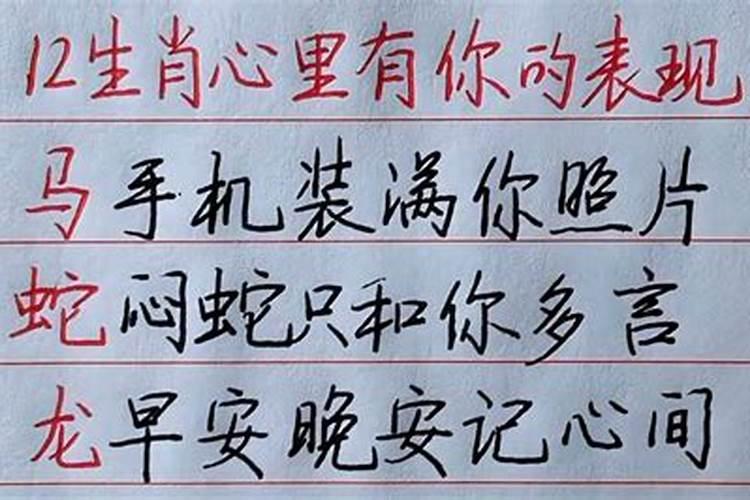 12生肖心里有你的表现
马手机装满你照片
蛇闷蛇只和你多言
龙早安晚安记心间